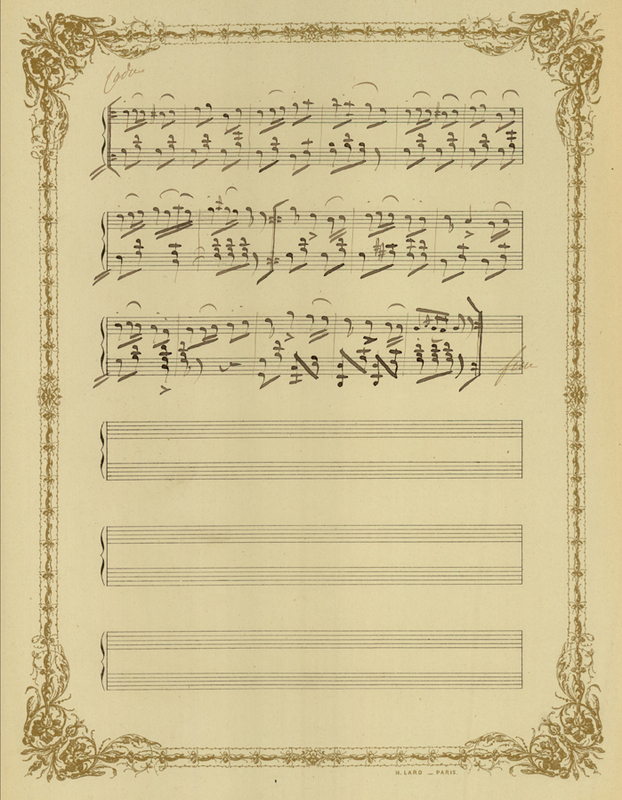 Coda
fine
H. LARD _ PARIS.